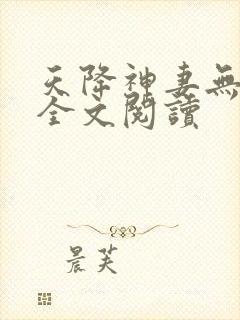 天降神妻無
全文閱讀
晨芙